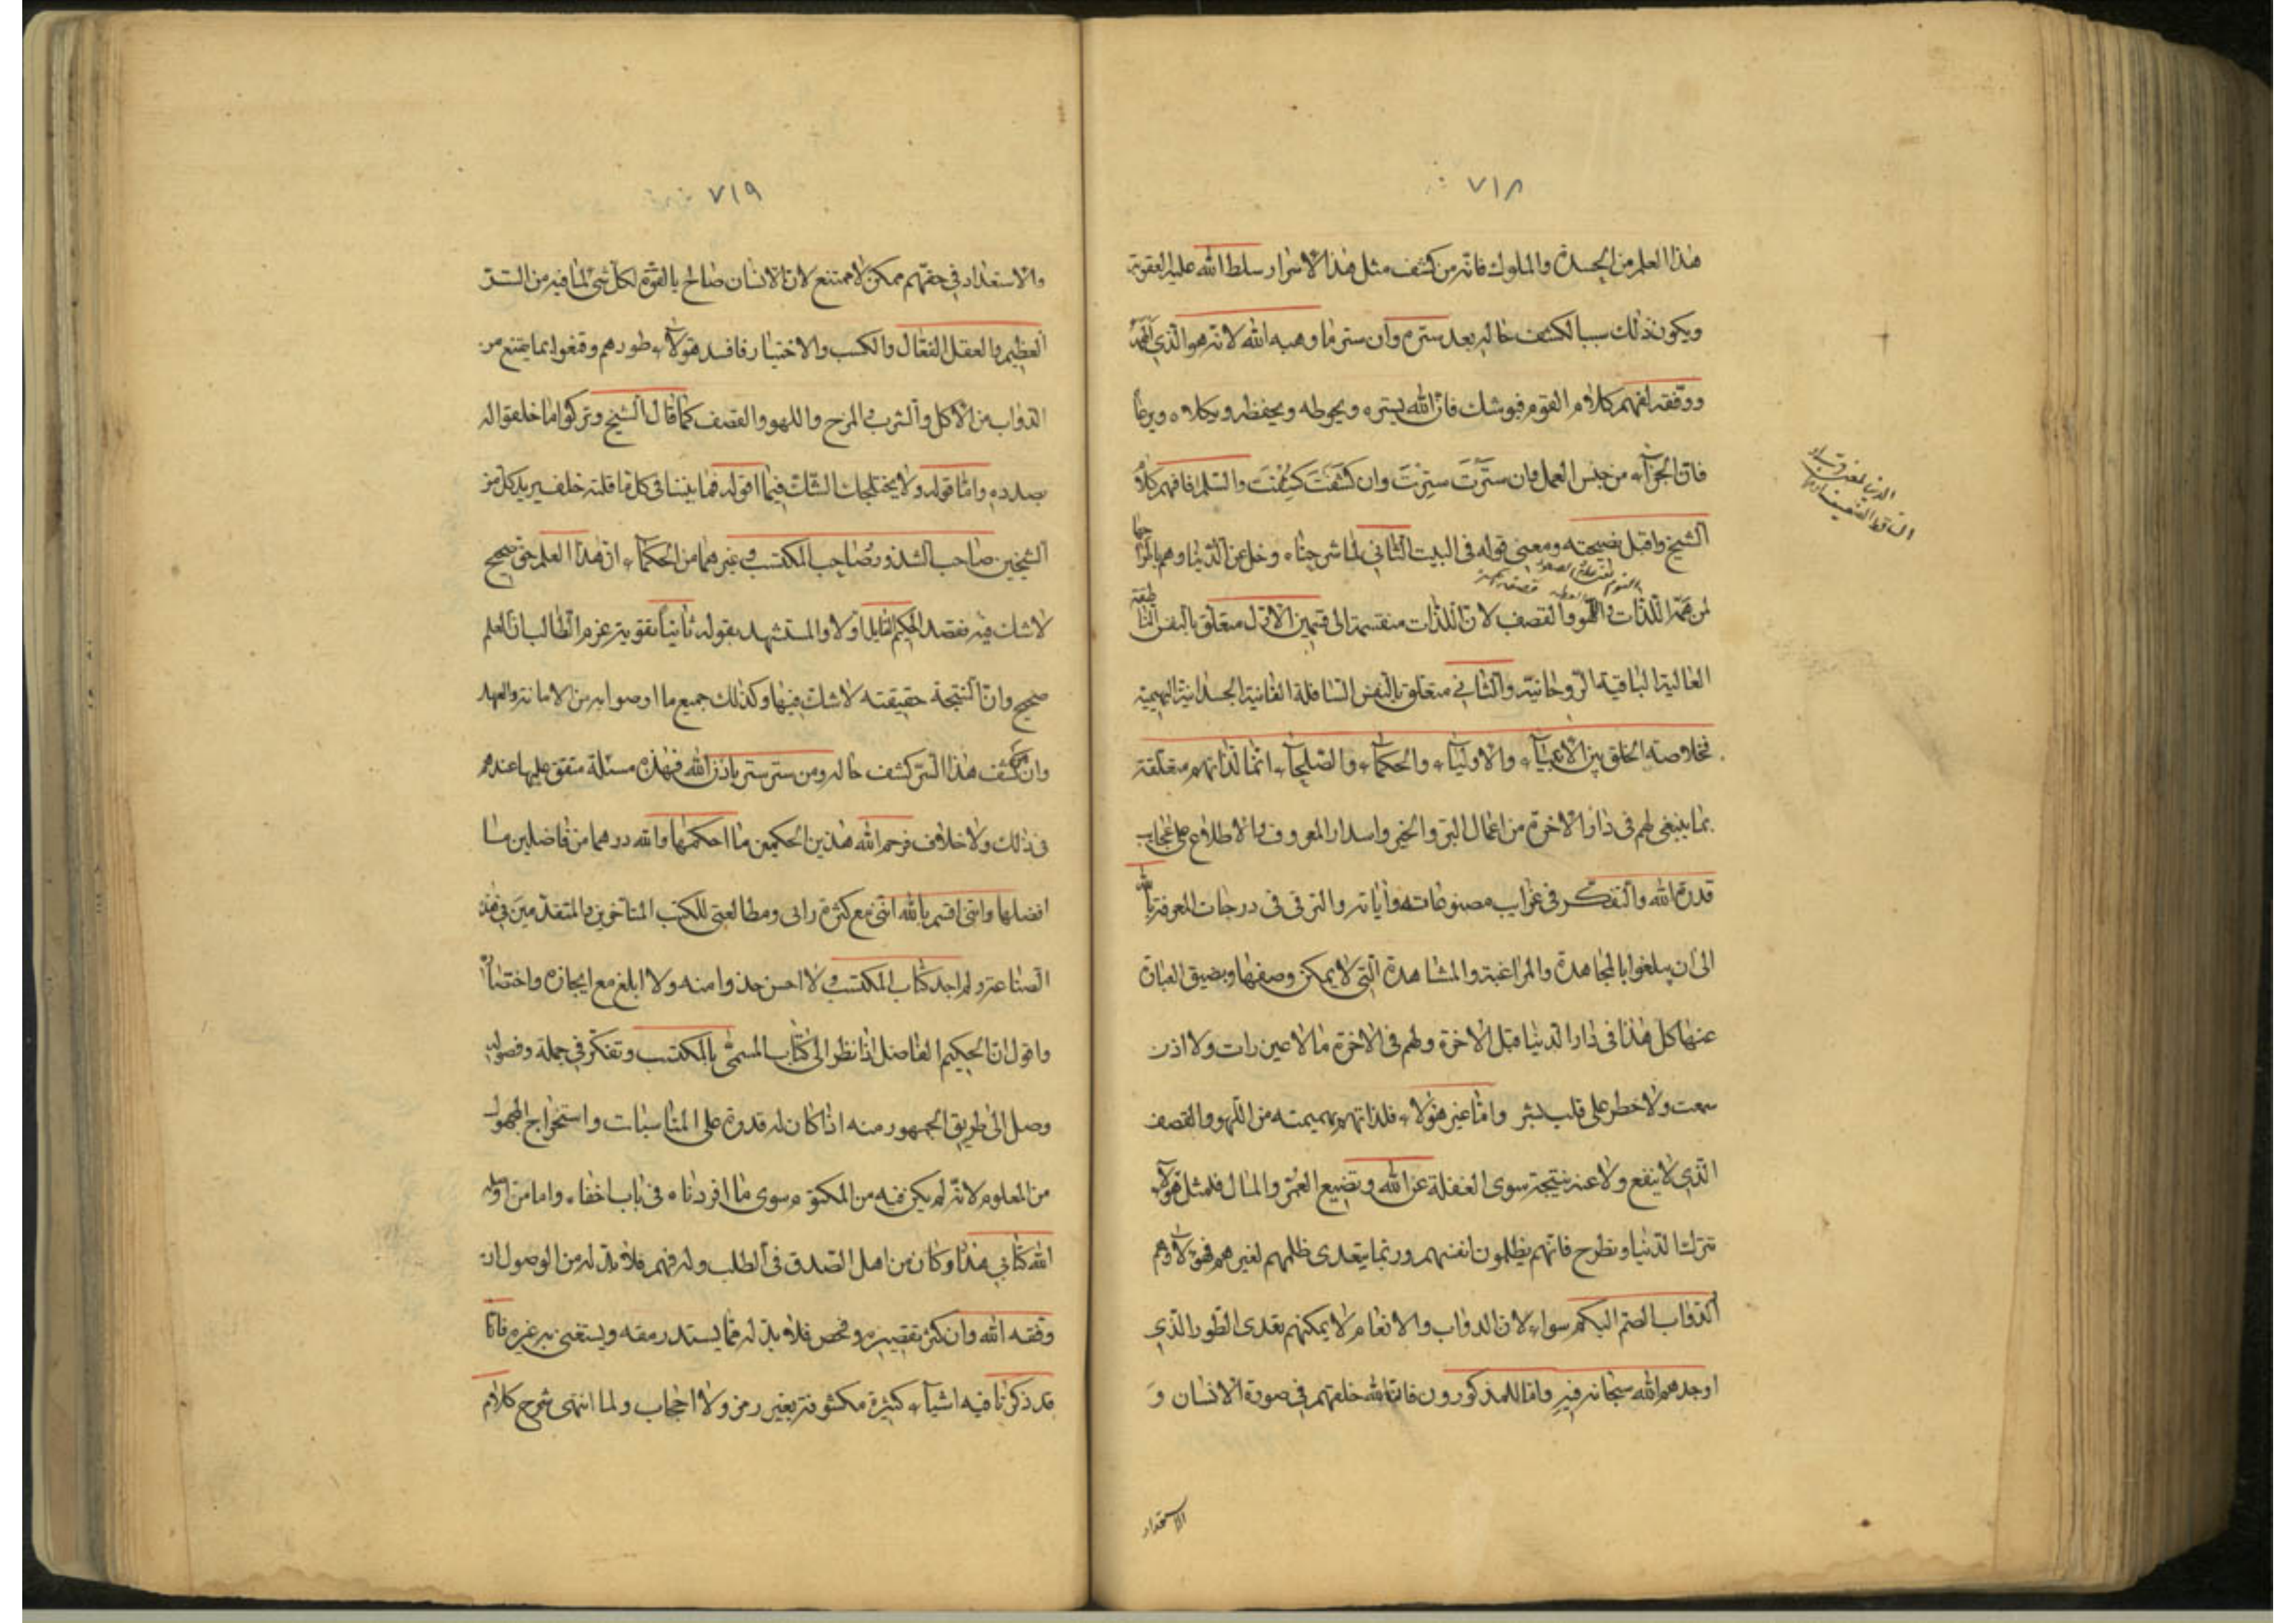 ٧١٨
هذا العلم من الحسدة والملوك فانه من كشف مثل هذا الاسرار سلط الله عليه العقوبة
ويكون ذلك سببا لكشف حاله بعد ستره وان ستر ما وهبه الله لانه هو الذي الهمه
ووفقه لفهم كلام القوم فيوشك فان الله يستره ويحوطه ويحفظه ويكلاه ويرعا
فان الجزآء من جنس العمل فان سَتَرْتَ سُتِرْتَ وان كَشَفْتَ كُشِفْتَ والسّلم فافهم كلام
الشيخ واقبل نصيحته ومعنى قوله فى البيت الثاني لما شرحناه وخل عن الدنيا وهم بالمزاحا
لمن همّه اللذات في اللهو والقصف لان اللذات منقسمة الى قسمين الاول متعلق بالنفس الناطقة
العالية الباقية الروحانية والثاني متعلق بالنفس السافلة الفانية الجسدانية البهيمية
فخلاصة الخلق من الانبيآء والاوليآء والحكمآء والصلحآء انما لذاتهم متعلقة
بما ينبغى لهم فى دار الاخرة من اعمال البر والخير واسدار المعروف والاطلاع على عجايب
قدرة الله والتفكر فى غرايب مصنوعاته وأياته والترقى فى درجات المعرفة بالله
الى ان يبلغوا بالمجاهدة والمراغبة والمشاهدة التى لا يمكن وصفها ويضيق العبارة
عنها كل هذا فى دار الدنيا قبل الاخرة ولهم فى الاخرة ما لا عين رات ولا اذن
سمعت ولا خطر على قلب بشر واما غير هؤلاء فلذاتهم بهيميته من اللهو والقصف
الذي لا ينفع ولا عنه نتيجة سوى الغفلة عن الله وتضييع العمر والمال فلمثل هؤلآء
تترك الدنيا وتطرح فانهم يظلمون انفسهم وربما يتعدى ظلمهم لغيرهم فهؤلاء وهم
الدواب الصم البكم سواء لان الدواب والانعام لا يمكنهم تعدى الطور الذي
اوجدهم الله سبحانه فيه واما المذكورون فان الله خلقهم فى صورة الانسان وَ
الاستعداد
٧١٩
والاستعداد في حقهم ممكن لا ممتنع لان الانسان صالح بالقوة لكل شئ لما فيه من السر
العظيم والعقل الفعال والكسب والاختيار فافسد هؤلآء طورهم وقنعوا بما يقنع من
الدواب من الاكل والشرب والمرح واللهو والقصف كما قال الشيخ وتركوا ما خلقوا له
بصدده واما قوله ولا يختلجك الشك فيما اقوله فما بيننا فى كل ما قلته خلف يريد كل من
الشيخين صاحب الشذور وصاحب المكتسب وغيرهما من الحكمآء ان هذا العلم حق صحيح
لا شك فيه فقصد الحكيم القايل اولا والمستشهد بقوله ثانياً تقوية عزم الطالب ان العلم
صحيح وان النتيجة حقيقته لا شك فيها وكذلك جميع ما اوصوا به من الامانة والعهد
وان من كشف هذا السرّ كشف حاله ومن ستر ستر باذن الله فهذه مسئلة متفق عليها عندهم
فى ذلك ولا خلاف فرحم الله هذين الحكيمين ما احكمها والله درهما من فاضلين ما
افضلها وانى اقسم بالله اننى مع كثرة راى ومطالعتى للكتب المتآخرين والمتقدمين في هذه
الصناعة ولم اجد كتاب المكتسب ولا احسن حذوا منه ولا ابلغ مع ايجازه واختصاره
واقول ان الحكيم الفاضل اذا نظر الى كتاب المسمى بالمكتسب وتفكر في جمله وفصوله
وصل الى طريق الجمهور منه اذا كان له قدرة على المناسبات واستخراج المجهول
من المعلوم لانه لم يكن فيه من المكتوم سوى ما افردناه فى باب اخفاء واما من
الله كتابي هذا وكان من اهل الصدق فى الطلب وله فهم فلا بد له من الوصول ان
وفقه الله وان كثر تقصيره وفحص فلا بد له مما يسد رمقه ويستغنى به غيره فانا
قد ذكرنا فيه اشيآء كثيرة مكشوفة بغير رمز ولا احجاب ولما انتهى شرح كلام